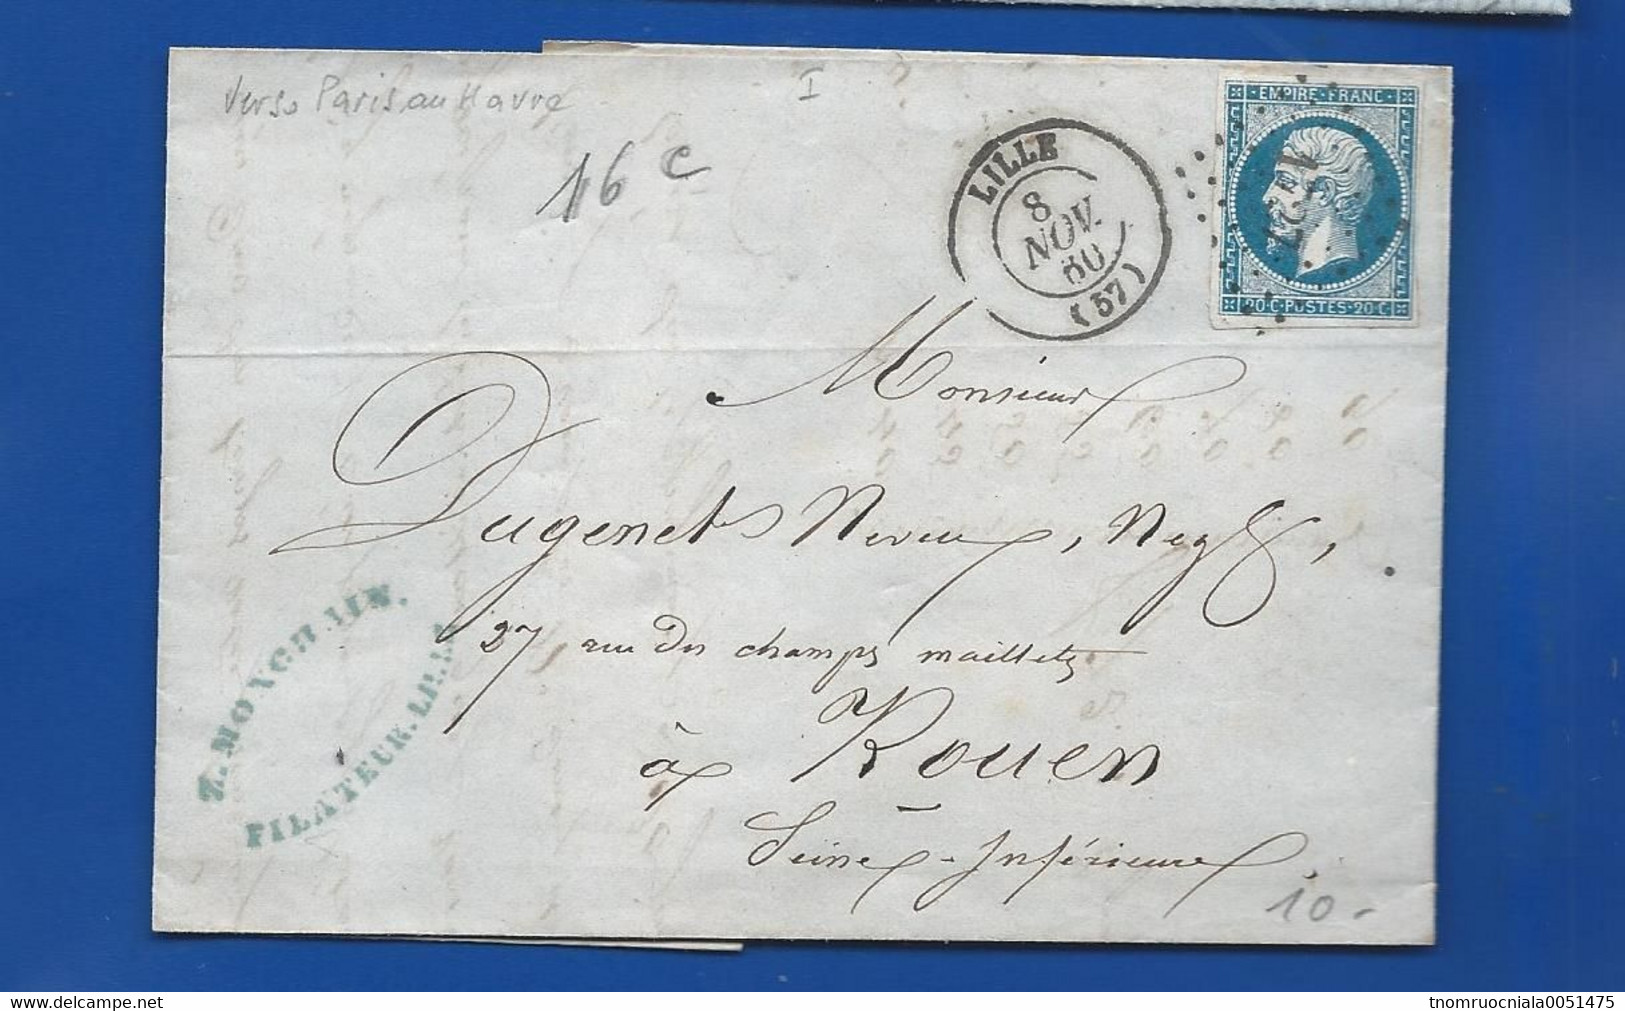 Verso Paris au Havre
I
16 c
LILLE
8
NOV.
60
(57)
EMPIRE · FRANC ·
20 C · POSTES · 20 C
Monsieur
Dugenet Neveu, Neg,
27, rue des champs maillets
à Rouen
Seine-Inférieure,
Z. MONGHAIN.
FILATEUR. LILLE
10 -
delcampe.net
tnomruocniala0051475